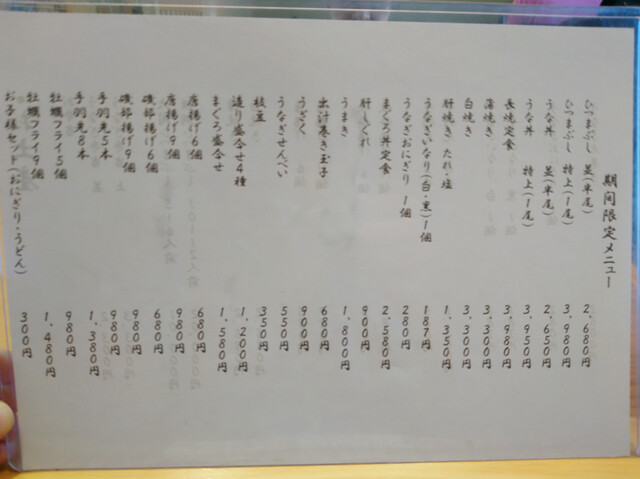 期間限定メニュー
ひつまぶし 並(半尾) 2,680円
ひつまぶし 特上(1尾) 3,980円
うな丼 並(半尾) 2,650円
うな丼 特上(1尾) 3,950円
長焼定食 3,980円
蒲焼き 3,300円
白焼き 3,300円
肝焼き・たれ・塩 1,350円
うなぎいなり(白・黒)1個 187円
うなぎおにぎり 1個 280円
まぐろ丼定食 2,580円
肝しぐれ 900円
うまき 1,800円
出汁巻き玉子 680円
うざく 900円
うなぎせんべい 550円
枝豆 350円
造り盛合せ4種 1,200円
まぐろ盛合せ 1,580円
唐揚げ6個 680円
唐揚げ9個 980円
磯部揚げ6個 680円
磯部揚げ9個 980円
手羽先5本 980円
手羽先8本 1,380円
牡蠣フライ5個 980円
牡蠣フライ9個 1,480円
お子様セット(おにぎり・うどん) 300円